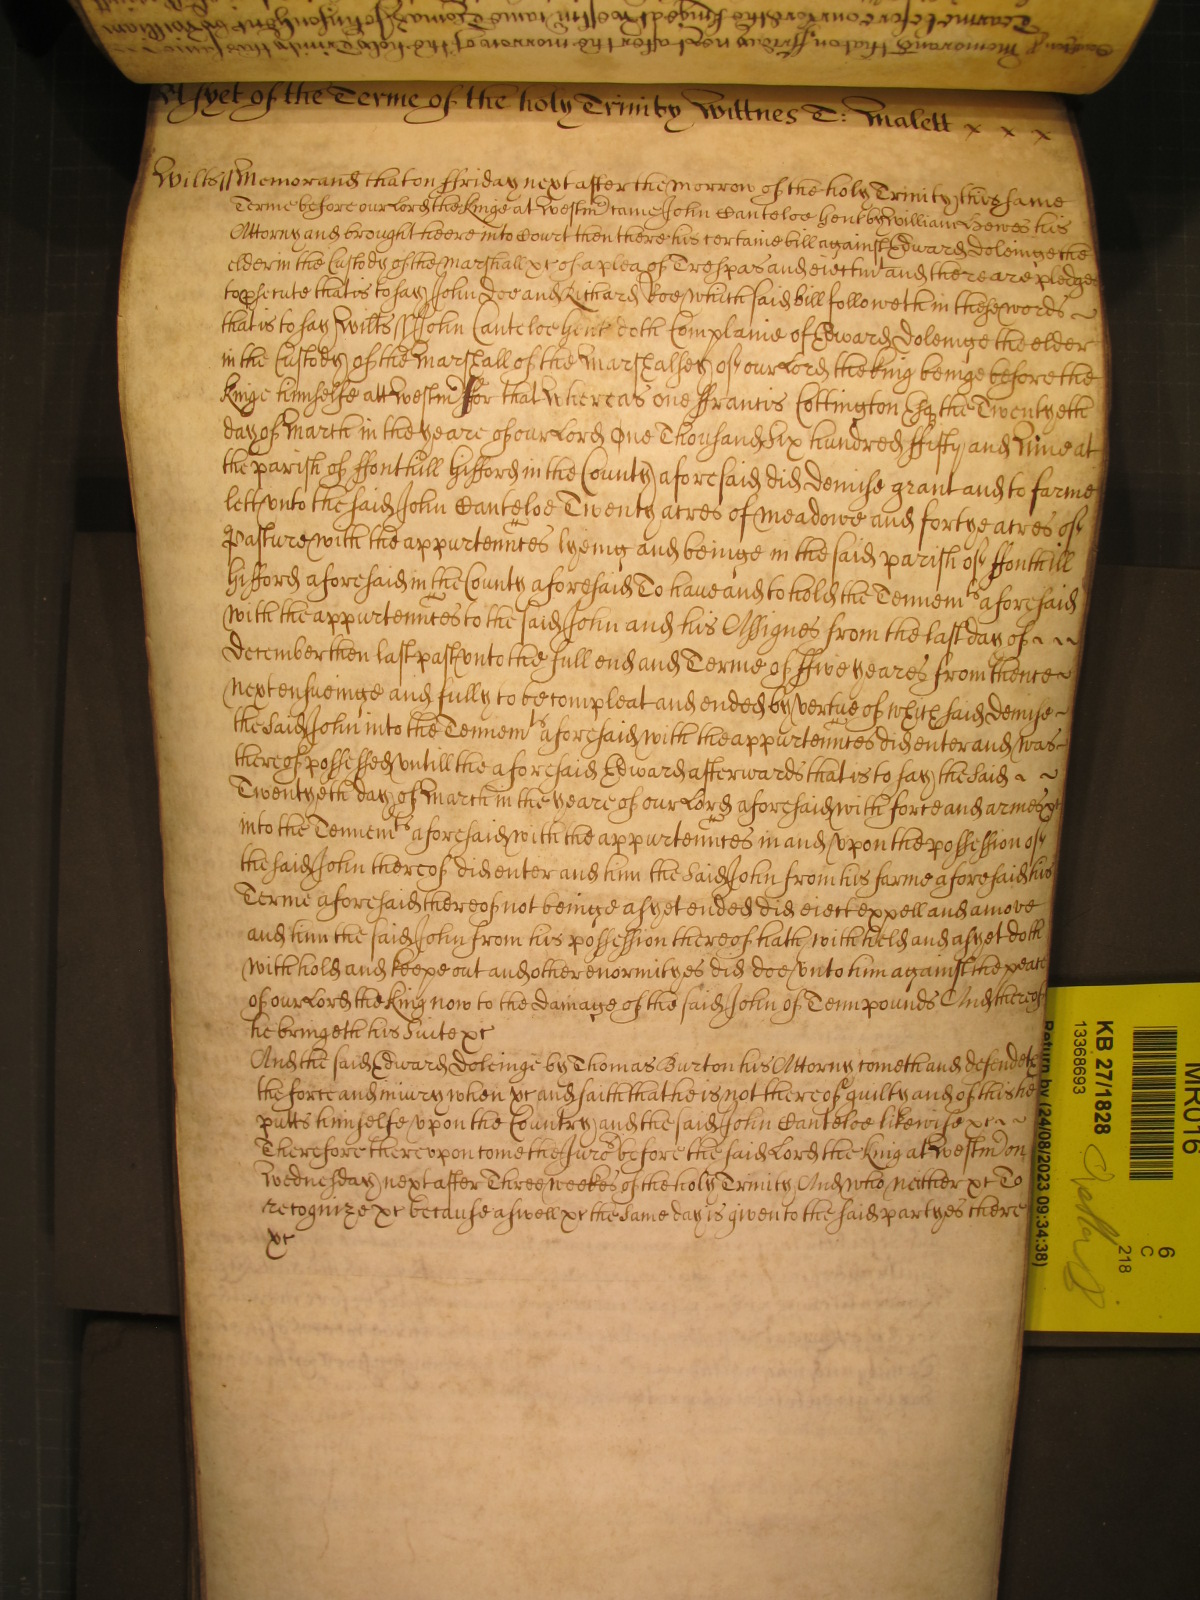 As yet of the Terme of the holy Trinity Wittnes T: Malett x x x
Wilts// Memorand that on ffriday next after the morrow of the holy Trinity this same
Terme before our Lord the Kinge at Westm came John Canteloe gent by William Bewes his
Attorny and brought heere into Court then there his certaine bill against Edward Doleinge the
elder in the Custody of the Marshall &c of a plea of Trespas and eiectmt and there are pledges
to psecute that is to say John Doe and Richard Roe which said bill followeth in these words ~
that is to say Wilts // John Canteloe gent doth Complaine of Edward Doleinge the elder
in the Custody of the Marshall of the Marshalsey of our Lord the King beinge before the
Kinge himselfe att Westm for that Whereas one ffrancis Cottington Esq the Twentyeth
day of March in the yeare of our Lord One Thousand Six hundred ffifty and Nine at
the parish of ffonthill Gifford in the County aforesaid did demise grant and to farme
lett vnto the said John Canteloe Twenty acres of meadowe and fortye acres of
Pasture with the appurtennces lyeing and beinge in the said parish of ffonthill
Gifford aforesaid in the County aforesaid To haue and to hold the Tennemts aforesaid
with the appurtennces to the said John and his Assignes from the last day of ~ ~ ~
December then last past vnto the full end and Terme of ffive yeares from thence ~
next ensueinge and fully to be compleat and ended by vertue of which said demise ~
the said John into the Tennemts aforesaid with the appurtennces did enter and was ~
thereof possessed vntill the aforesaid Edward afterwards that is to say the said ~ ~
Twentyeth day of March in the yeare of our Lord aforesaid with force and armes &c
into the Tennemts aforesaid with the appurtennces in and vpon the possession of
the said John thereof did enter and him the said John from his farme aforesaid his
Terme aforesaid thereof not beinge as yet ended did eiect expell and amove
and him the said John from his possession thereof hath withheld and as yet doth
withhold and keepe out and other enormityes did doe vnto him against the peace
of our Lord the King now to the damage of the said John of Tenn pounds And thereof
he bringeth his Suite &c
And the said Edward Doleinge by Thomas Burton his Attorny cometh and defendeth
the force and iniury when &c and saith that he is not thereof guilty and of this he
putts himselfe vpon the Country and the said John Canteloe likewise &c ~ ~
Therefore therevpon come the Jury before the said Lord the King at Westm on
Wednesday next after Three weekes of the holy Trinity And who neither &c To
recognize &c because aswell &c the same day is given to the said partyes there
&c
MR016
6
C
218
KB 27/1828
13368693
Return by (24/08/2023 09:34:38)